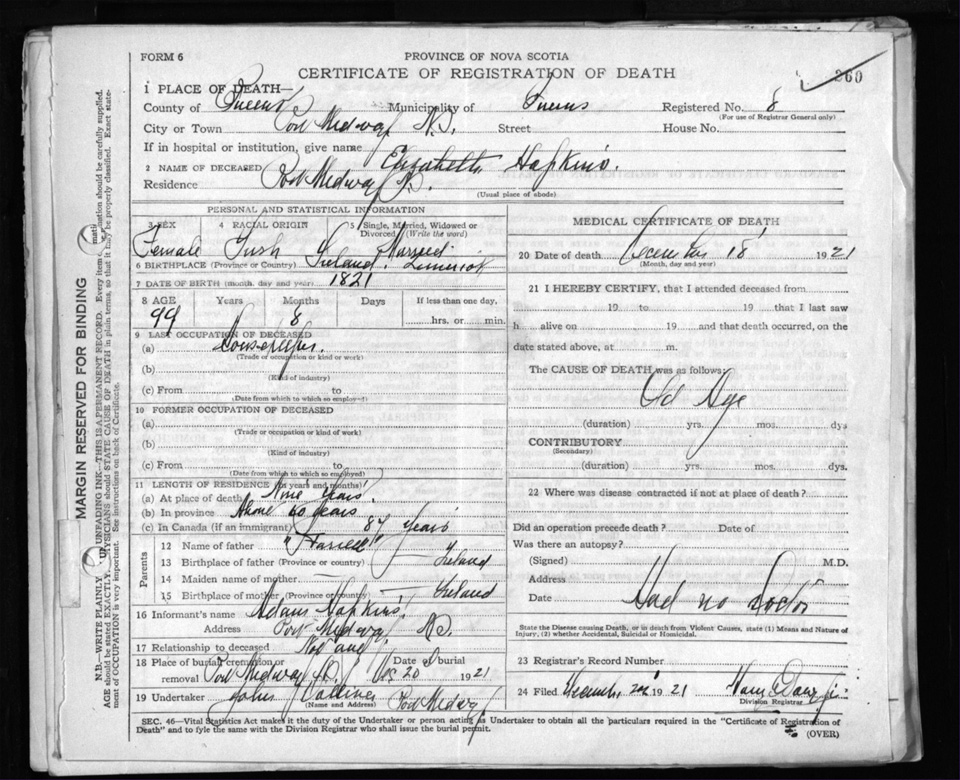 FORM 6
PROVINCE OF NOVA SCOTIA
CERTIFICATE OF REGISTRATION OF DEATH
260
1 PLACE OF DEATH—
County of Queens Municipality of Queens Registered No. 8
(For use of Registrar General only)
City or Town Port Medway N.S. Street House No.
If in hospital or institution, give name
2 NAME OF DECEASED Elizabeth Hopkins.
Residence Port Medway N.S.
(Usual place of abode)
PERSONAL AND STATISTICAL INFORMATION
3 SEX 4 RACIAL ORIGIN 5 Single, Married, Widowed or Divorced (Write the word)
Female Irish Married
6 BIRTHPLACE (Province or Country) Ireland. Limerick
7 DATE OF BIRTH (month, day and year) 1821
8 AGE Years Months Days If less than one day,
99 8 hrs. or min.
9 LAST OCCUPATION OF DECEASED
(a) Housekeeper.
(Trade or occupation or kind of work)
(b)
(Kind of industry)
(c) From to
(Date from which to which so employed)
10 FORMER OCCUPATION OF DECEASED
(a)
(Trade or occupation or kind of work)
(b)
(Kind of industry)
(c) From to
(Date from which to which so employed)
11 LENGTH OF RESIDENCE (in years and months)
(a) At place of death Nine Years
(b) In province Above 60 years
(c) In Canada (if an immigrant) 84 Years
Parents
12 Name of father "Farrell"
13 Birthplace of father (Province or country) Ireland
14 Maiden name of mother —
15 Birthplace of mother (Province or country) — Ireland
16 Informant's name Adam Hopkins
Address Port Medway N.S.
17 Relationship to deceased
18 Place of burial, cremation or removal Port Medway N.S. Date of burial Dec 20 1921
19 Undertaker John
(Name and Address) Port Medway
MEDICAL CERTIFICATE OF DEATH
20 Date of death December 18 1921
(Month, day and year)
21 I HEREBY CERTIFY, that I attended deceased from
19 to 19 that I last saw
h alive on 19 and that death occurred, on the
date stated above, at m.
The CAUSE OF DEATH was as follows:
Old Age
(duration) yrs. mos. dys
CONTRIBUTORY
(Secondary)
(duration) yrs. mos. dys.
22 Where was disease contracted if not at place of death?
Did an operation precede death? Date of
Was there an autopsy?
(Signed) M.D.
Address
Date Had no Doctor
State the Disease causing Death, or in death from Violent Causes, state (1) Means and Nature of
Injury, (2) whether Accidental, Suicidal or Homicidal.
23 Registrar's Record Number
24 Filed December 1921
Division Registrar
SEC. 46—Vital Statistics Act makes it the duty of the Undertaker or person acting as Undertaker to obtain all the particulars required in the "Certificate of Registration of
Death" and to fyle the same with the Division Registrar who shall issue the burial permit.
(OVER)
MARGIN RESERVED FOR BINDING
N.B.—WRITE PLAINLY UNFADING INK—THIS IS A PERMANENT RECORD. Every item mation should be carefully supplied.
AGE should be stated EXACTLY. PHYSICIANS should STATE CAUSE OF DEATH in plain terms, so that it may be properly classified. Exact state-
ment of OCCUPATION is very important. See instructions on back of Certificate.